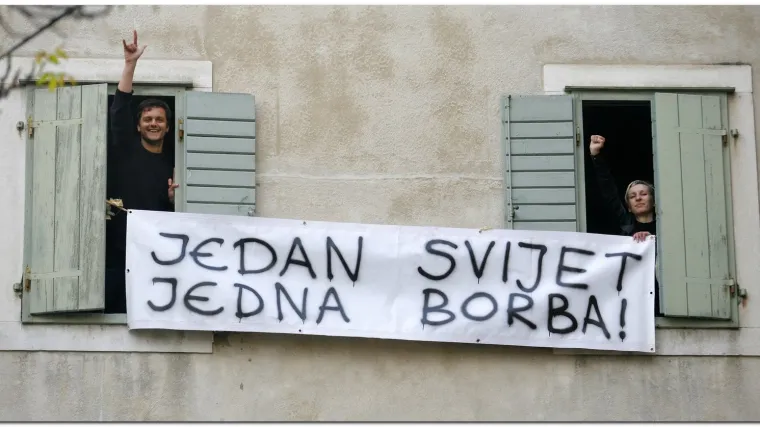 JEDAN SVIJET
JEDNA BORBA!